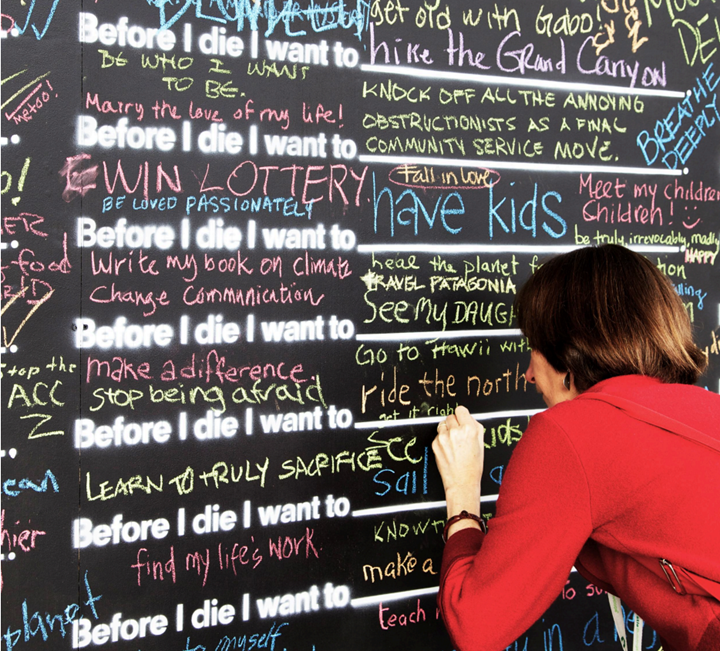 get old with Gabo!
Before I die I want to hike the Grand Canyon
BE WHO I WANT
TO BE.
KNOCK OFF ALL THE ANNOYING
Marry the love of my life!
OBSTRUCTIONISTS AS A FINAL
Before I die I want to
COMMUNITY SERVICE MOVE.
BREATHE
DEEPLY
Fall in love
WIN LOTTERY
have kids
Meet my children
Children!
BE LOVED PASSIONATELY
Before I die I want to
be truly, irrevocably, madly
HAPPY
Write my book on climate
Change Communication
heal the planet
TRAVEL PATAGONIA
SEE MY DAUGH
Before I die I want to
Go to Hawii with
make a difference
stop being afraid
ride the north
Before I die I want to
get it right
See kids
LEARN TO TRULY SACRIFICE
Sail
Before I die I want to
KNOW
find my life's work.
make a
Before I die I want to
teach
planet
myself
Stop the
ACC